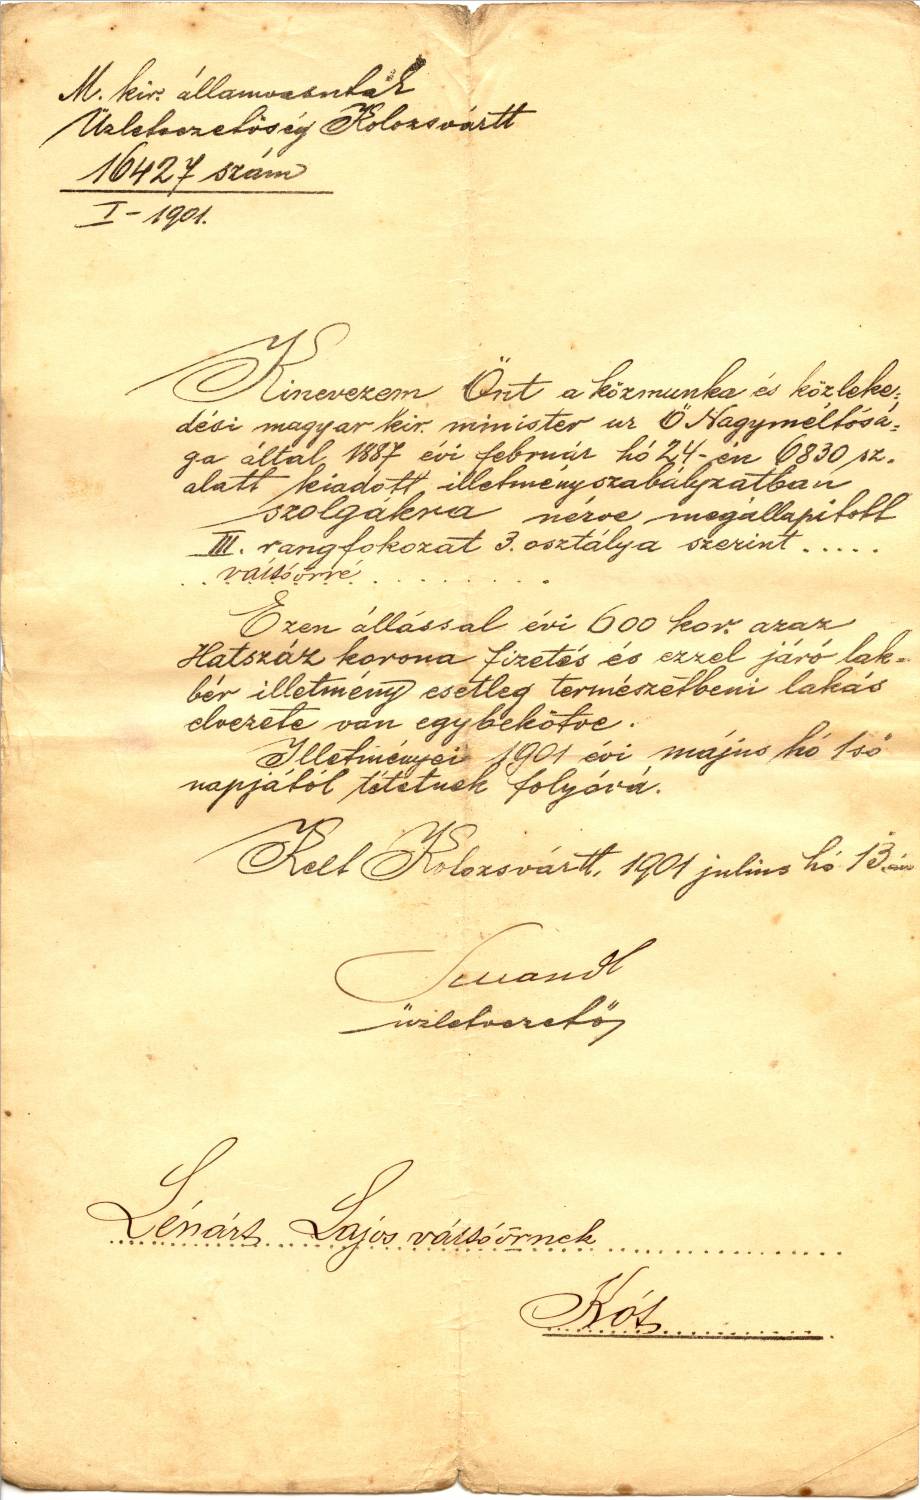 M. kir. államvasutak
Üzletvezetőség Kolozsvártt
16427 szám
I - 1901.
Kinevezem Önt a közmunka és közleke-
dési magyar kir. minister ur Ő Nagyméltósá-
ga által 1887 évi február hó 24-én 6830 sz.
alatt kiadott illetményszabályzatban
szolgákra nézve megállapitott
III. rangfokozat 3. osztálya szerint .....
váltóőrré
Ezen állással évi 600 kor. azaz
Hatszáz korona fizetés és ezzel járó lak-
bér illetmény esetleg természetbeni lakás
élvezete van egybekötve.
Illetményei 1901 évi május hó 1ső
napjától tétetnek folyóvá.
Kelt Kolozsvártt, 1901 julius hó 13-án
üzletvezető
Lénárt Lajos váltóőrnek
Kót